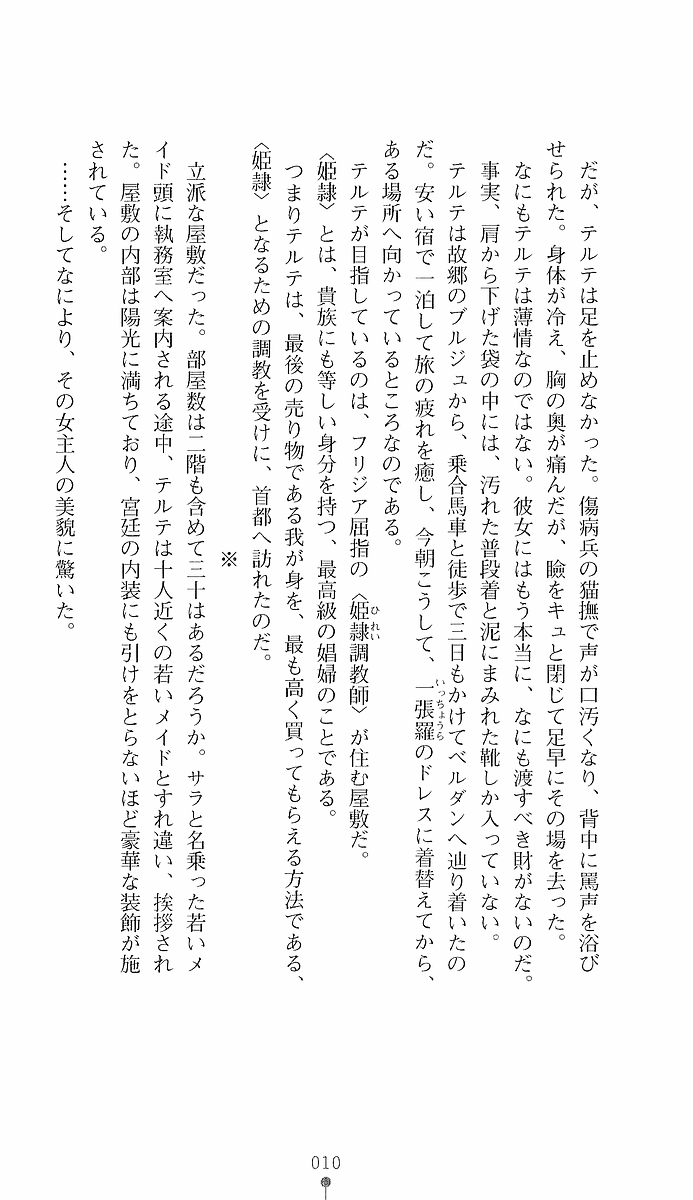 だが、テルテは足を止めなかった。傷病兵の猫撫で声が口汚くなり、背中に罵声を浴び
せられた。身体が冷え、胸の奥が痛んだが、瞼をキュと閉じて足早にその場を去った。
なにもテルテは薄情なのではない。彼女にはもう本当に、なにも渡すべき財がないのだ。
事実、肩から下げた袋の中には、汚れた普段着と泥にまみれた靴しか入っていない。
テルテは故郷のブルジュから、乗合馬車と徒歩で三日もかけてベルダンへ辿り着いたの
だ。安い宿で一泊して旅の疲れを癒し、今朝こうして、一張羅のドレスに着替えてから、
いっちょうら
ある場所へ向かっているところなのである。
テルテが目指しているのは、フリジア屈指の〈姫隷調教師〉が住む屋敷だ。
ひれい
〈姫隷〉とは、貴族にも等しい身分を持つ、最高級の娼婦のことである。
つまりテルテは、最後の売り物である我が身を、最も高く買ってもらえる方法である、
〈姫隷〉となるための調教を受けに、首都へ訪れたのだ。
※
立派な屋敷だった。部屋数は二階も含めて三十はあるだろうか。サラと名乗った若いメ
イド頭に執務室へ案内される途中、テルテは十人近くの若いメイドとすれ違い、挨拶され
た。屋敷の内部は陽光に満ちており、宮廷の内装にも引けをとらないほど豪華な装飾が施
されている。
……そしてなにより、その女主人の美貌に驚いた。
010